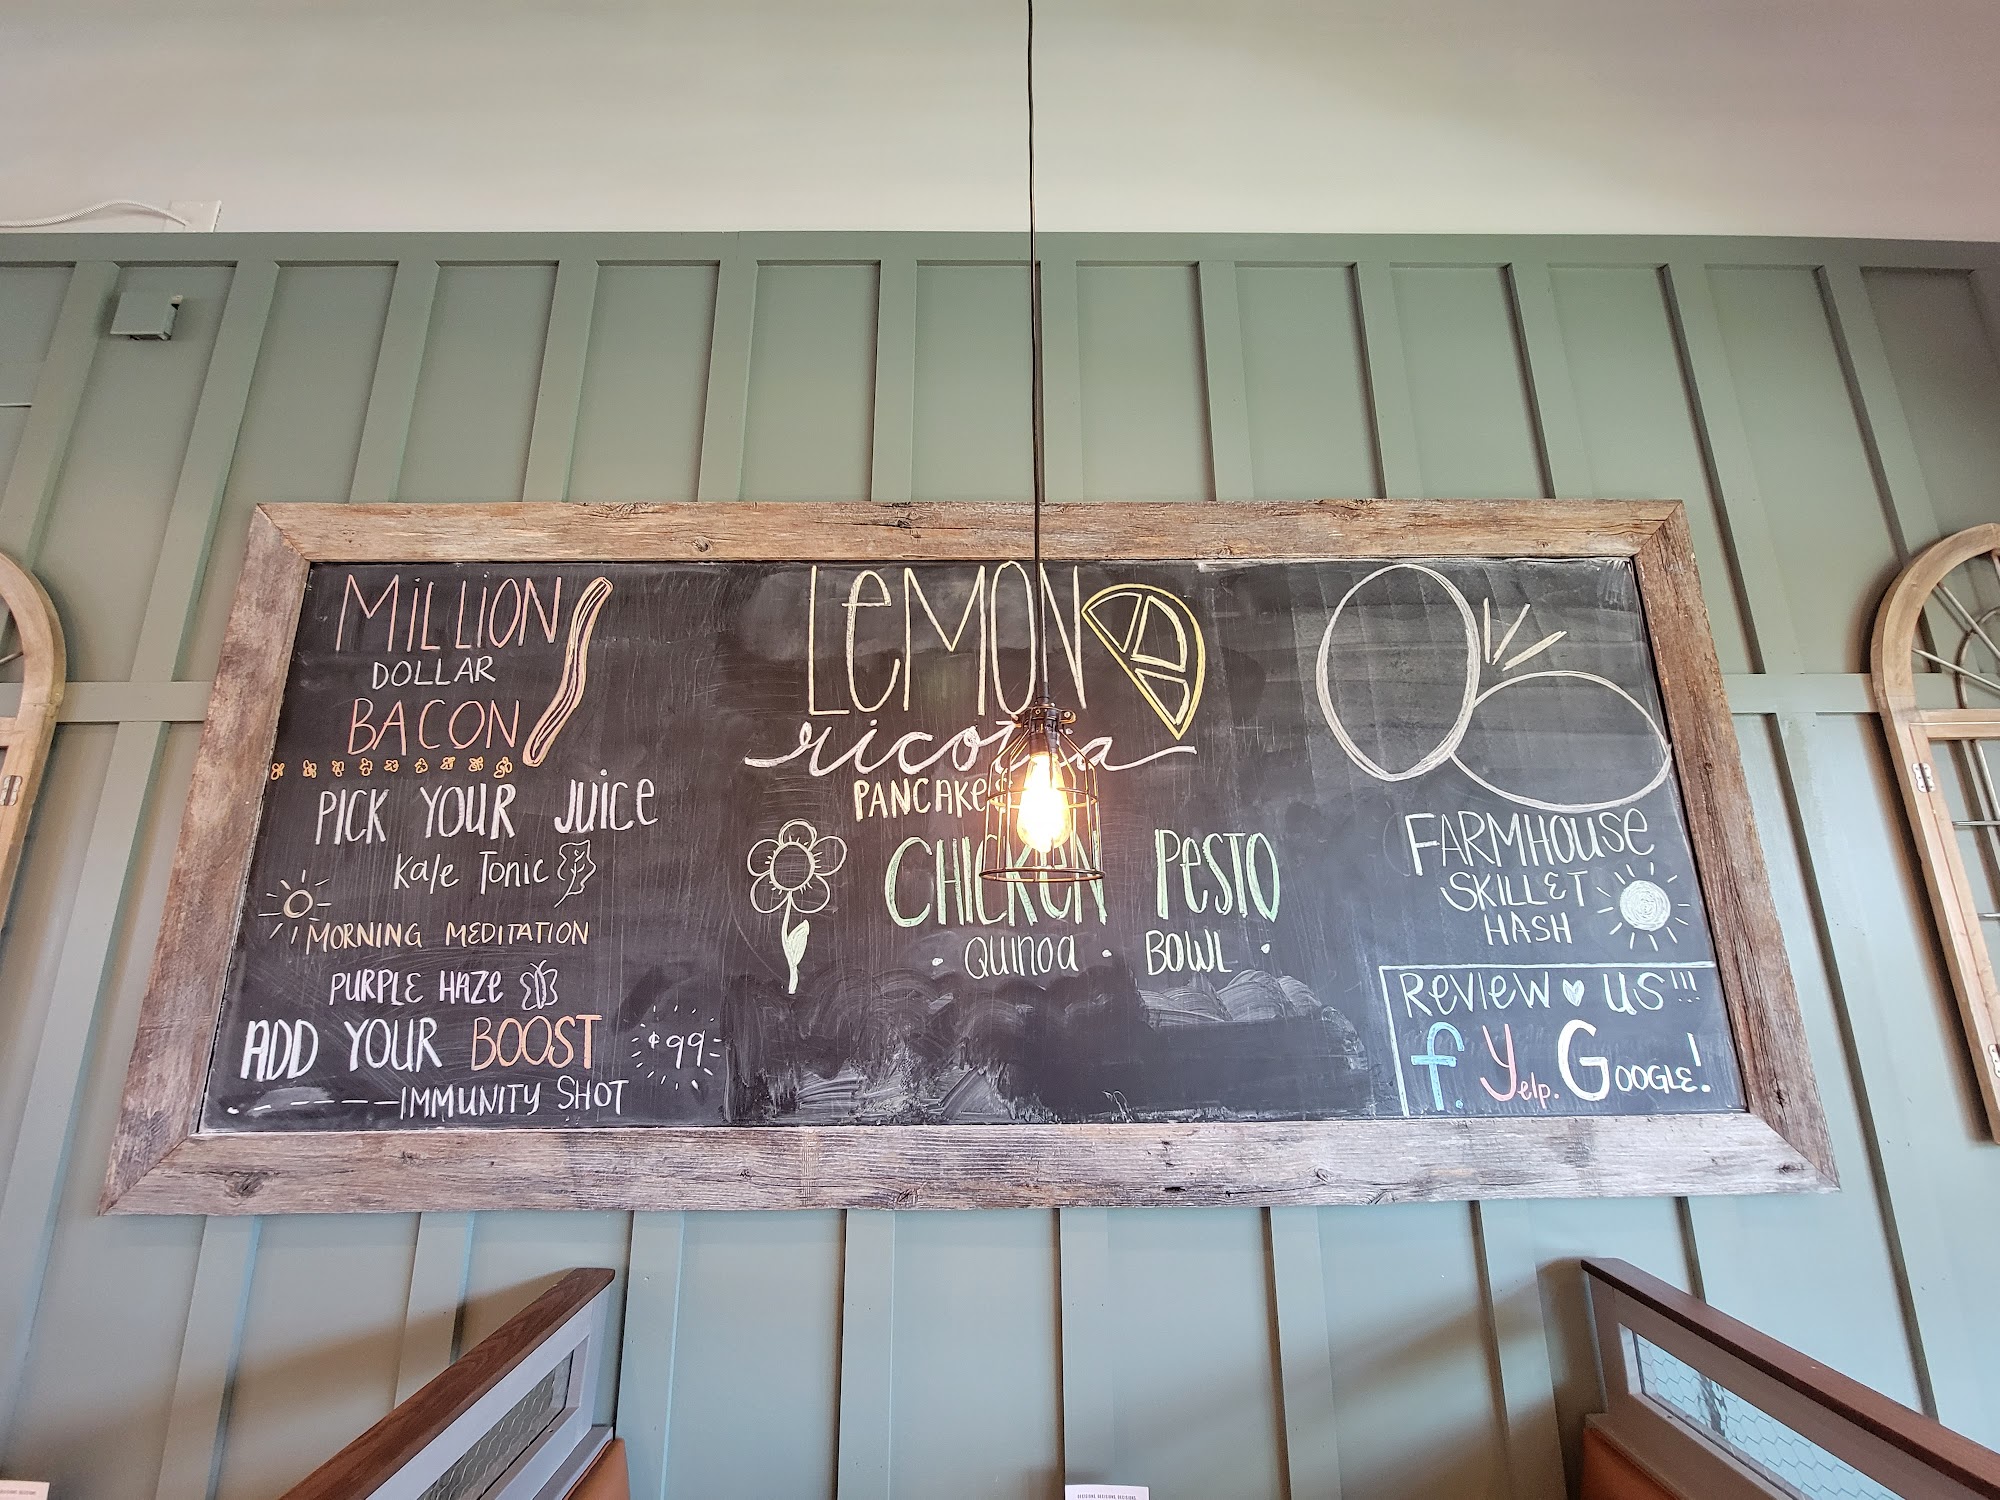 MiLLiON
DOLLAR
BACON
PICK YOUR JUICE
Kale Tonic
MORNING MEDITATION
PURPLE HAZE
ADD YOUR BOOST
$.99
IMMUNITY SHOT
LeMON
ricotta
PANCAKES
CHICKEN PESTO
QUINOA • BOWL •
FARMHOUSE
SKILLET
HASH
REVIEW ♥ US!!!
f. Yelp. GOOGLE!
DECISIONS, DECISIONS, DECISIONS